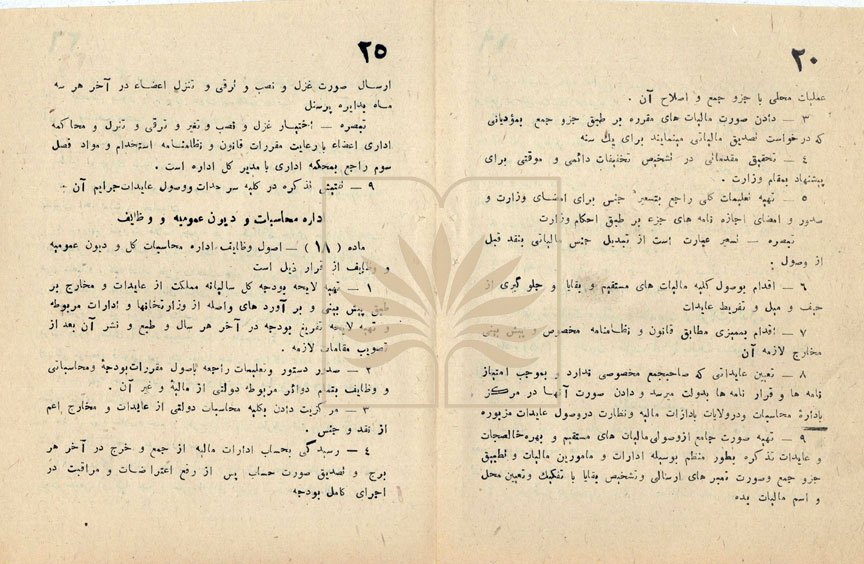 ۲۰
عملیات محلی با جزو جمع و اصلاح آن .
۳ — دادن صورت مالیات های مقرره بر طبق جزو جمع بمؤدیانی
که درخواست تصدیق مالیاتی مینمایند برای یك سنه
٤ — تحقیق مقدماتی در تشخیص تخفیفات دائمی و موقتی برای
پیشنهاد بمقام وزارت .
۵ — تهیه تعلیمات کلی راجع بتسعیر جنس برای امضای وزارت و
صدور و امضای اجازه نامه های جزء بر طبق احکام وزارت
تبصره — تسعیر عبارت است از تبدیل جنس مالیاتی بنقد قبل
از وصول .
۶ — اقدام بوصول کلیه مالیات های مستقیم و بقایا و جلو گیری از
حیف و میل و تفریط عایدات
۷ — اقدام بممیزی مطابق قانون و نظامنامه مخصوص و پیش بینی
مخارج لازمه آن
۸ — تعیین عایداتی که صاحبجمع مخصوصی ندارد و بموجب امتیاز
نامه ها و قرار نامه ها بدولت میرسد و دادن صورت آنها در مرکز
باداره محاسبات و درولایات بادارات مالیه ونظارت دروصول عایدات مزبوره
۹ — تهیه صورت جامع ازوصولی مالیات های مستقیم و بهره خالصجات
و عایدات تذکره بطور منظم بوسیله ادارات و مامورین مالیات و تطبیق
جزو جمع وصورت تعبیر های ارسالی وتشخیص بقایا با تفکیك وتعیین محل
و اسم مالیات بده
۲۵
ارسال صورت عزل و نصب و ترقی و تنزل اعضاء در آخر هر سه
ماه بدایره پرسنل
تبصره — اختیار عزل و نصب و تغیر و ترقی و تنزل و محاکمه
اداری اعضاء با رعایت مقررات قانون و نظامنامه استخدام و مواد فصل
سوم راجع بمحکمه اداری با مدیر کل اداره است .
۹ — تفتیش تذکره در کلیه سر حدات ووصول عایدات جرایم آن
اداره محاسبات و دیون عمومیه و وظایف
ماده ( ۱۸ ) — اصول وظایف اداره محاسبات کل و دیون عمومیه
و وظایف از قرار ذیل است
۱ — تهیه لایحه بودجه کل سالیانه مملکت از عایدات و مخارج بر
طبق پیش بینی و بر آورد های واصله از وزارتخانها و ادارات مربوطه
و تهیه لایحه تفریغ بودجه در آخر هر سال و طبع و نشر آن بعد از
تصویب مقامات لازمه .
۲ — صدور دستور وتعلیمات راجعه باصول مقررات بودجهٔ ومحاسباتی
و وظایف بتمام دوائر مربوطه دولتی از مالیهٔ و غیر آن .
۳ — مرکزیت دادن بکلیه محاسبات دولتی از عایدات و مخارج اعم
از نقد و جنس .
٤ — رسیدگی بحساب ادارات مالیه از جمع و خرج در آخر هر
برج و تصدیق صورت حساب پس از رفع اعتراضات و مراقبت در
اجرای کامل بودجه